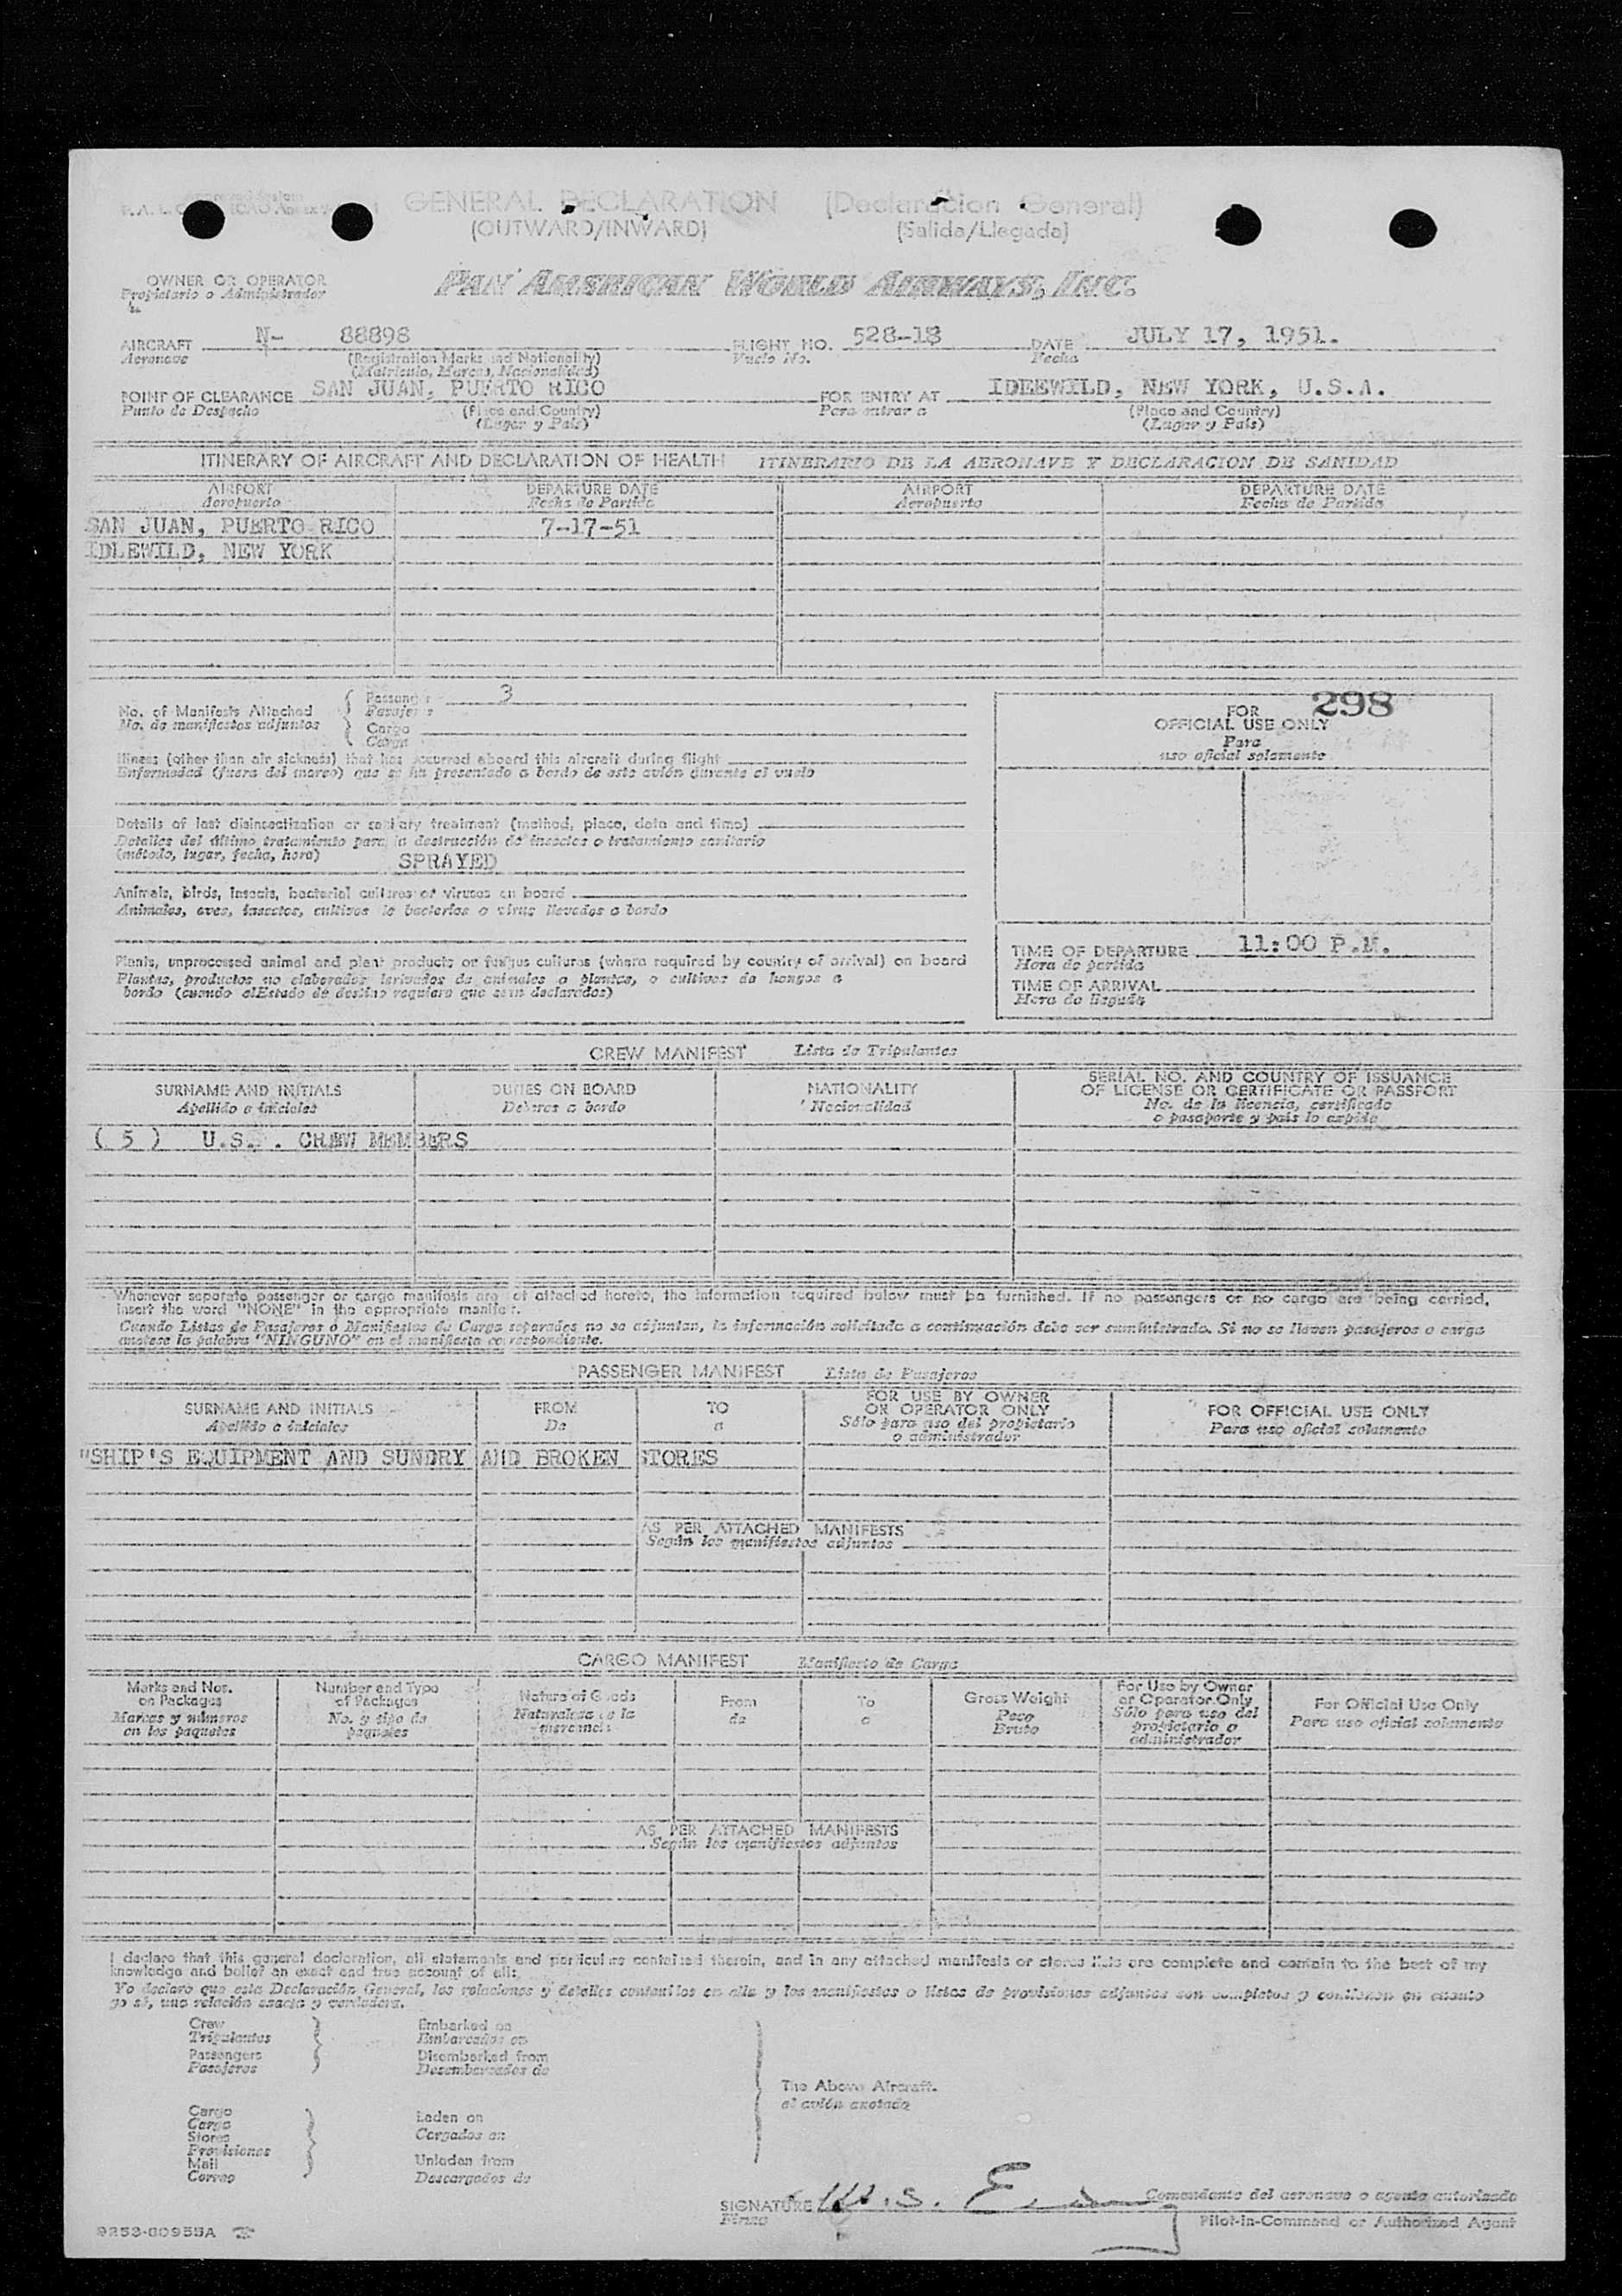 GENERAL DECLARATION (Declaración General)
(OUTWARD/INWARD) (Salida/Llegada)
OWNER OR OPERATOR PAN AMERICAN WORLD AIRWAYS, INC.
Propietario o Administrador
AIRCRAFT N- 88898 FLIGHT NO. 528-18 DATE JULY 17, 1951.
Aeronave (Registration Marks and Nationality) Vuelo No. Fecha
(Matricula, Marcas, Nacionalidad)
POINT OF CLEARANCE SAN JUAN, PUERTO RICO FOR ENTRY AT IDEEWILD, NEW YORK, U.S.A.
Punto de Despacho (Place and Country) Para entrar a (Place and Country)
(Lugar y País) (Lugar y País)
ITINERARY OF AIRCRAFT AND DECLARATION OF HEALTH ITINERARIO DE LA AERONAVE Y DECLARACION DE SANIDAD
AIRPORT DEPARTURE DATE AIRPORT DEPARTURE DATE
Aeropuerto Fecha de Partida Aeropuerto Fecha de Partida
SAN JUAN, PUERTO RICO 7-17-51
IDLEWILD, NEW YORK
No. of Manifests Attached
No. de manifiestos adjuntos
Passenger 3
Pasajeros
Cargo
Carga
298
FOR
OFFICIAL USE ONLY
Para
uso oficial solamente
Illness (other than air sickness) that has occurred aboard this aircraft during flight
Enfermedad (fuera del mareo) que se ha presentado a bordo de este avión durante el vuelo
Details of last disinsectization or sanitary treatment (method, place, date and time)
Detalles del último tratamiento para la destrucción de insectos o tratamiento sanitario
(método, lugar, fecha, hora) SPRAYED
Animals, birds, insects, bacterial cultures or viruses on board
Animales, aves, insectos, cultivos de bacterias o virus llevados a bordo
Plants, unprocessed animal and plant products or fungus cultures (where required by country of arrival) on board
Plantas, productos no elaborados derivados de animales o plantas, o cultivos de hongos a
bordo (cuando el Estado de destino requiera que sean declarados)
TIME OF DEPARTURE 11:00 P.M.
Hora de partida
TIME OF ARRIVAL
Hora de llegada
CREW MANIFEST Lista de Tripulantes
SURNAME AND INITIALS DUTIES ON BOARD NATIONALITY SERIAL NO. AND COUNTRY OF ISSUANCE
OF LICENSE OR CERTIFICATE OR PASSPORT
Apellido e iniciales Deberes a bordo Nacionalidad No. de la licencia, certificado
o pasaporte y país lo expide
( 5 ) U.S. . CREW MEMBERS
Whenever separate passenger or cargo manifests are not attached hereto, the information required below must be furnished. If no passengers or no cargo are being carried,
insert the word "NONE" in the appropriate manifest.
Cuando Listas de Pasajeros o Manifiestos de Carga separados no se adjuntan, la información solicitada a continuación debe ser suministrada. Si no se llevan pasajeros o carga
anótese la palabra "NINGUNO" en el manifiesto correspondiente.
PASSENGER MANIFEST Lista de Pasajeros
SURNAME AND INITIALS FROM TO FOR USE BY OWNER
OR OPERATOR ONLY FOR OFFICIAL USE ONLY
Apellido e iniciales De a Sólo para uso del propietario
o administrador Para uso oficial solamente
"SHIP'S EQUIPMENT AND SUNDRY AND BROKEN STORES
AS PER ATTACHED MANIFESTS
Según los manifiestos adjuntos
CARGO MANIFEST Manifiesto de Carga
Marks and Nos.
on Packages
Marcas y números
en los paquetes
Number and Type
of Packages
No. y tipo de
paquetes
Nature of Goods
Naturaleza de la
mercancía
From
de
To
a
Gross Weight
Peso
Bruto
For Use by Owner
or Operator Only
Sólo para uso del
propietario o
administrador
For Official Use Only
Para uso oficial solamente
AS PER ATTACHED MANIFESTS
Según los manifiestos adjuntos
I declare that this general declaration, all statements and particulars contained therein, and in any attached manifests or stores lists are complete and contain to the best of my
knowledge and belief an exact and true account of all:
Yo declaro que esta Declaración General, las relaciones y detalles contenidos en ella y los manifiestos o listas de provisiones adjuntos son completos y contienen en cuanto
yo sé, una relación exacta y verdadera.
Crew
Tripulantes
Passengers
Pasajeros
Embarked on
Embarcados en
Disembarked from
Desembarcados de
The Above Aircraft.
el avión anotado
Cargo
Carga
Stores
Provisiones
Mail
Correo
Laden on
Cargados en
Unladen from
Descargados de
SIGNATURE W.S. Comandante del aeronave o agente autorizado
Firma Pilot-in-Command or Authorized Agent
9253-00955A